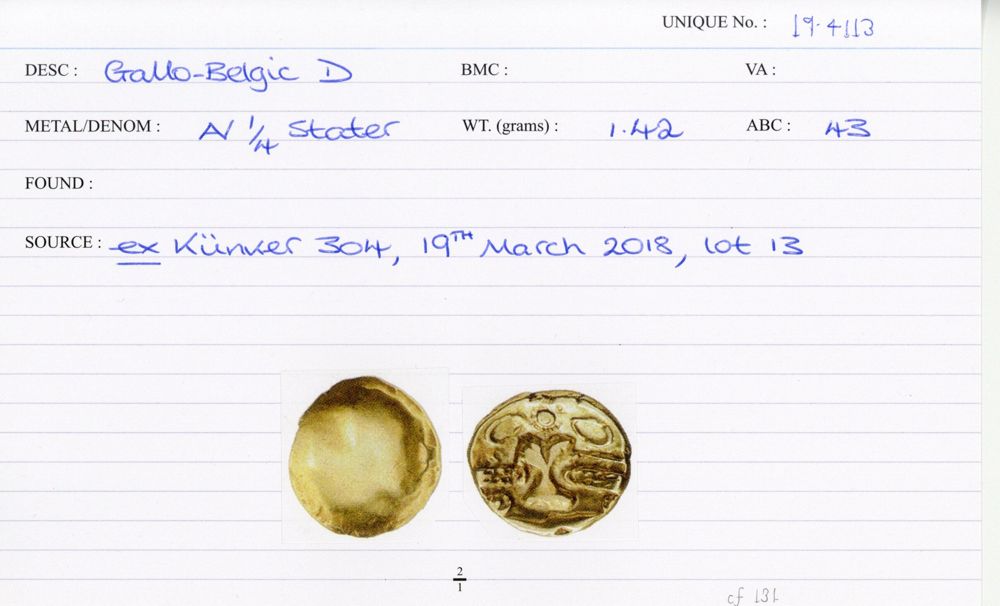 UNIQUE No. : 19.4113
DESC : Gallo-Belgic D BMC : VA :
METAL/DENOM : A/ 1/4 Stater WT. (grams) : 1.42 ABC : 43
FOUND :
SOURCE : ex Künker 304, 19TH March 2018, lot 13
2
1
cf 131